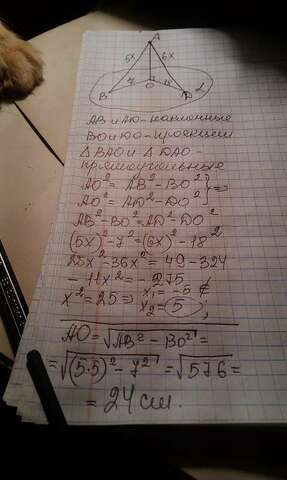 A
5x 6x
7 O 18
B D α
AB и AD - наклонные
BO и DO - проекции
△ BAO и △ DAO -
прямоугольные
AO² = AB² - BO² }
AO² = AD² - DO² } =>
AB² - BO² = AD² - DO²
(5x)² - 7² = (6x)² - 18²
25x² - 36x² = 49 - 324
- 11x² = - 275
x² = 25 => x₁ = -5 ∉
x₂ = 5 ;
AO = √AB² - BO² =
= √(5·5)² - 7² = √576 =
= 24 см.